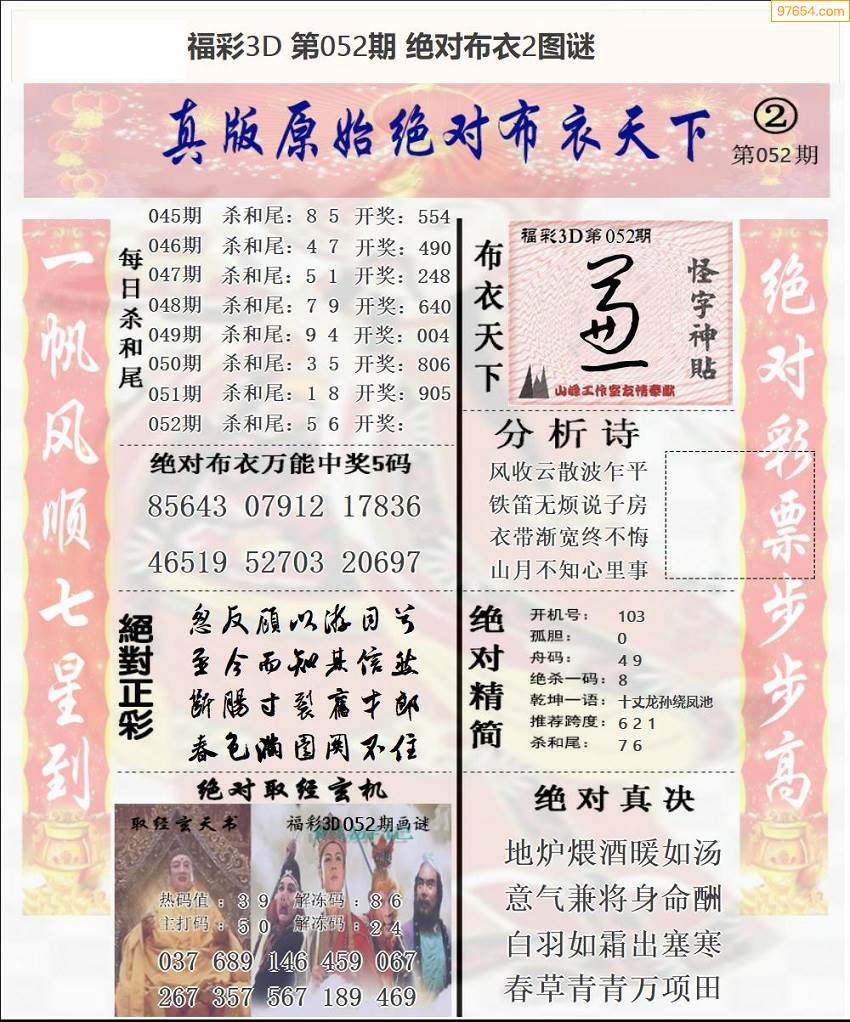 97654.com
福彩3D 第052期 绝对布衣2图谜
真版原始绝对布衣天下
②
第052期
一帆风顺七星到
每日杀和尾
045期 杀和尾：8 5 开奖：554
046期 杀和尾：4 7 开奖：490
047期 杀和尾：5 1 开奖：248
048期 杀和尾：7 9 开奖：640
049期 杀和尾：9 4 开奖：004
050期 杀和尾：3 5 开奖：806
051期 杀和尾：1 8 开奖：905
052期 杀和尾：5 6 开奖：
绝对布衣万能中奖5码
85643 07912 17836
46519 52703 20697
絕對正彩
忽反顾以游目兮
至今而知其信然
断肠寸裂旧牛郎
春色满园关不住
绝对取经玄机
取经玄天书
福彩3D052期画谜
热码值：3 9 解冻码：8 6
主打码：5 0 解冻码：2 4
037 689 146 459 067
267 357 567 189 469
布衣天下
福彩3D第052期
怪字神貼
山峰工作室友情奉献
分析诗
风收云散波乍平
铁笛无烦说子房
衣带渐宽终不悔
山月不知心里事
绝对精简
开机号： 103
孤胆： 0
舟码： 4 9
绝杀一码：8
乾坤一语：十丈龙孙绕凤池
推荐跨度：6 2 1
杀和尾： 7 6
绝对真决
地炉煨酒暖如汤
意气兼将身命酬
白羽如霜出塞寒
春草青青万项田
绝对彩票步步高